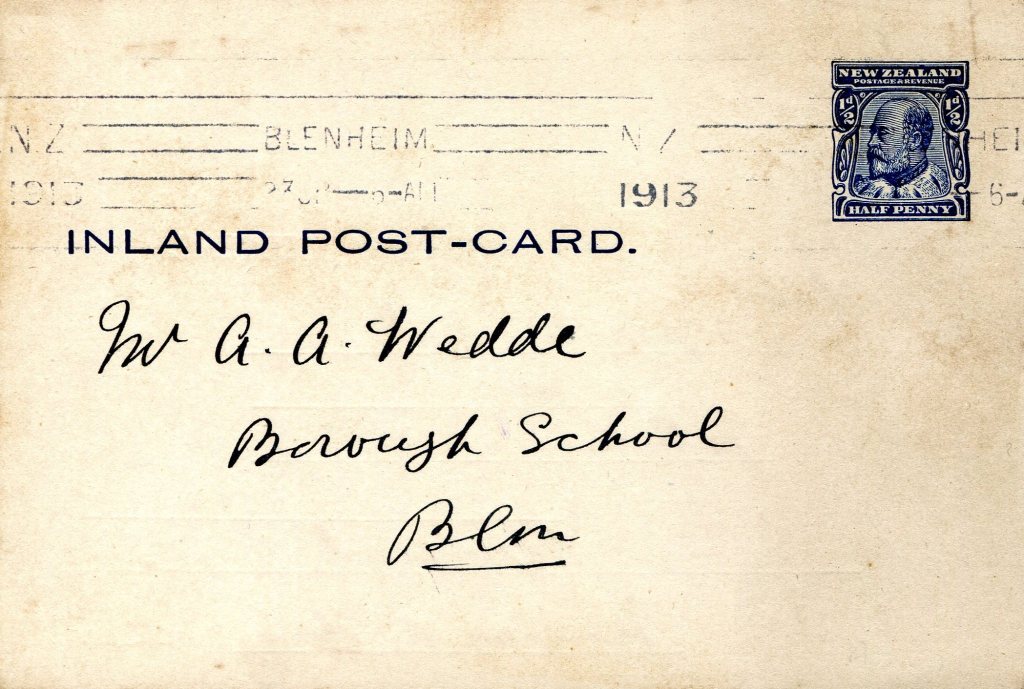 NEW ZEALAND
POSTAGE & REVENUE
½d ½d
HALF PENNY
N Z BLENHEIM N Z
1913 1913
INLAND POST-CARD.
Mr A. A. Wedde
Borough School
Blm